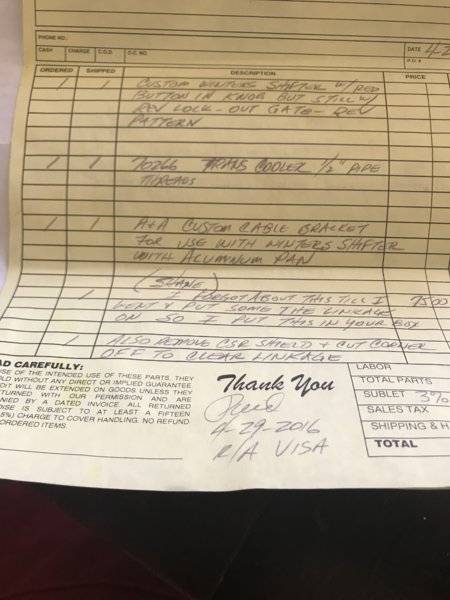 PHONE NO.
CASH CHARGE C.O.D. C.C. NO. DATE 4-2
P.O. #
ORDERED SHIPPED DESCRIPTION PRICE
1 1 CUSTOM WINTERS SHIFTER W/ RED
BUTTON IN KNOB BUT STILL W/
REV LOCK-OUT GATE- REV
PATTERN
1 1 70266 TRANS COOLER 1/2" PIPE
THREADS
1 1 A&A CUSTOM CABLE BRACKET
FOR USE WITH WINTERS SHIFTER
WITH ALUMINUM PAN
(SHANE)
1 I FORGOT ABOUT THIS TILL I 7500
WENT & PUT SOME THE LINKAGE
ON SO I PUT THIS IN YOUR BOX
1 ALSO REMOVE CSR SHIELD & CUT CORNER
OFF TO CLEAR LINKAGE
AD CAREFULLY:
SE OF THE INTENDED USE OF THESE PARTS, THEY
LD WITHOUT ANY DIRECT OR IMPLIED GUARANTEE
DIT WILL BE EXTENDED ON GOODS UNLESS THEY
TURNED WITH OUR PERMISSION AND ARE
NIED BY A DATED INVOICE. ALL RETURNED
DISE IS SUBJECT TO AT LEAST A FIFTEEN
5%) CHARGE TO COVER HANDLING. NO REFUND
ORDERED ITEMS.
Thank You
4-29-2016
R/A VISA
LABOR
TOTAL PARTS
SUBLET 3%
SALES TAX
SHIPPING & H
TOTAL